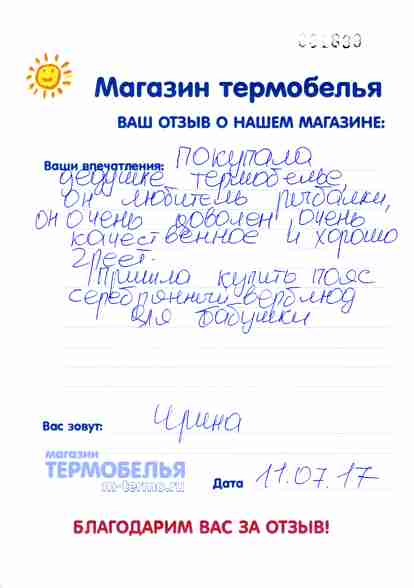 002839
Магазин термобелья
ВАШ ОТЗЫВ О НАШЕМ МАГАЗИНЕ:
Ваши впечатления: покупала
дедушке термобелье,
он любитель рыбалки,
он очень доволен, очень
качественное и хорошо
греет.
Пришла купить пояс
серебрянный верблюд
для бабушки
Вас зовут: Ирина
магазин
ТЕРМОБЕЛЬЯ
m-termo.ru
Дата 11.07.17
БЛАГОДАРИМ ВАС ЗА ОТЗЫВ!